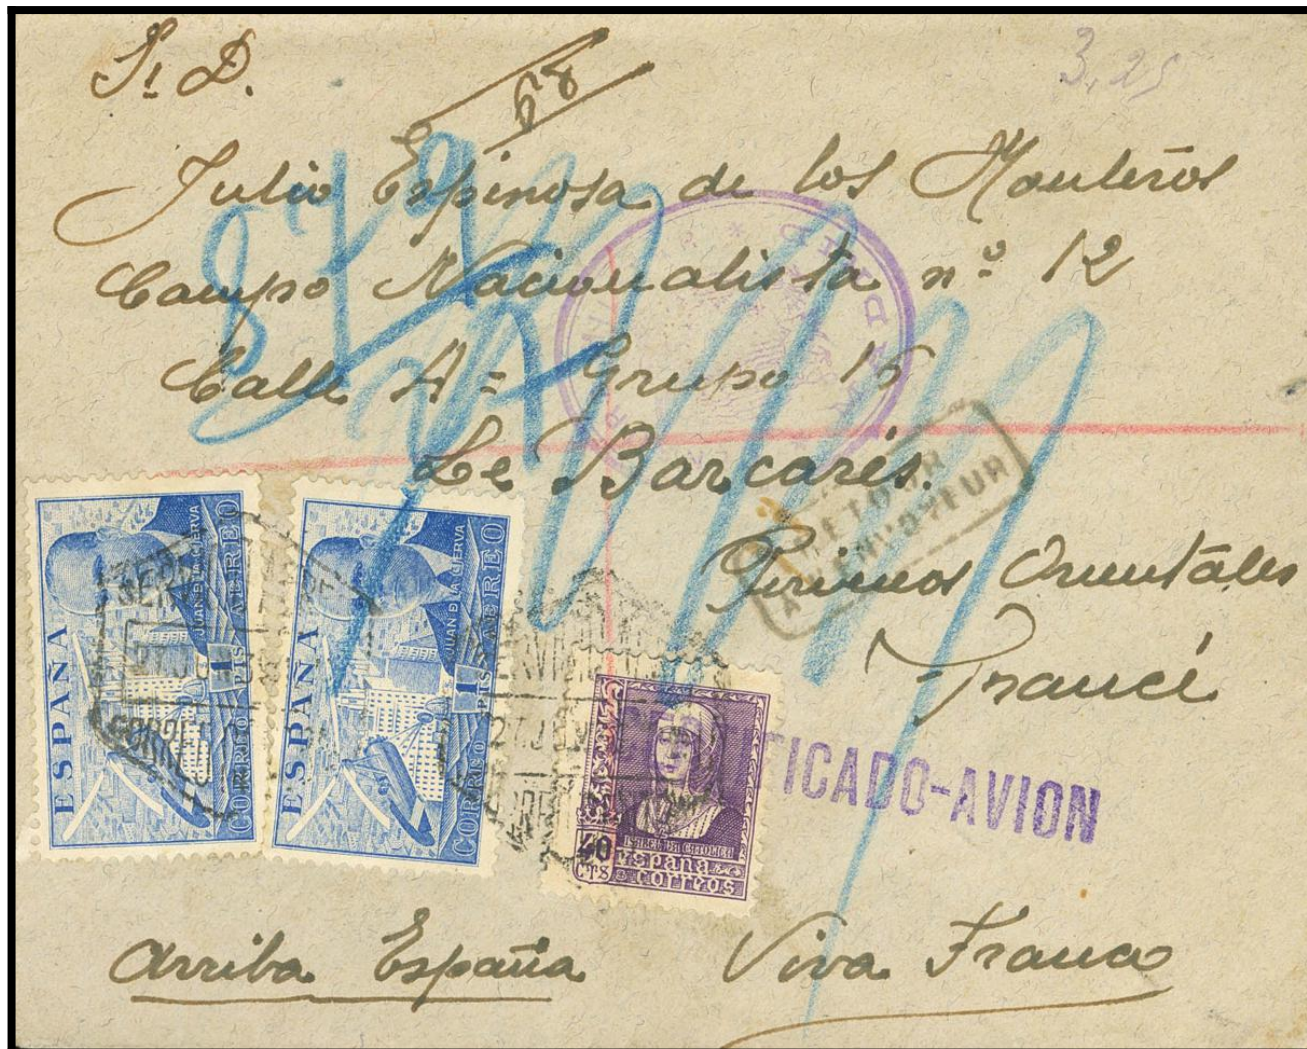 Sr D.
68
3,25
Julio Espinosa de los Monteros
Campo Nacionalista nº 12
Calle A = Grupo 15
Le Barcarés.
RETOUR
A L'ENVOYEUR
Pirineos Orientales
France
ESPAÑA
JUAN DE LA CIERVA
1 PTS
CORREO AEREO
ESPAÑA
JUAN DE LA CIERVA
1 PTS
CORREO AEREO
ISABEL LA CATOLICA
40 CTS
España
correos
FICADO-AVION
Arriba España Viva Franco